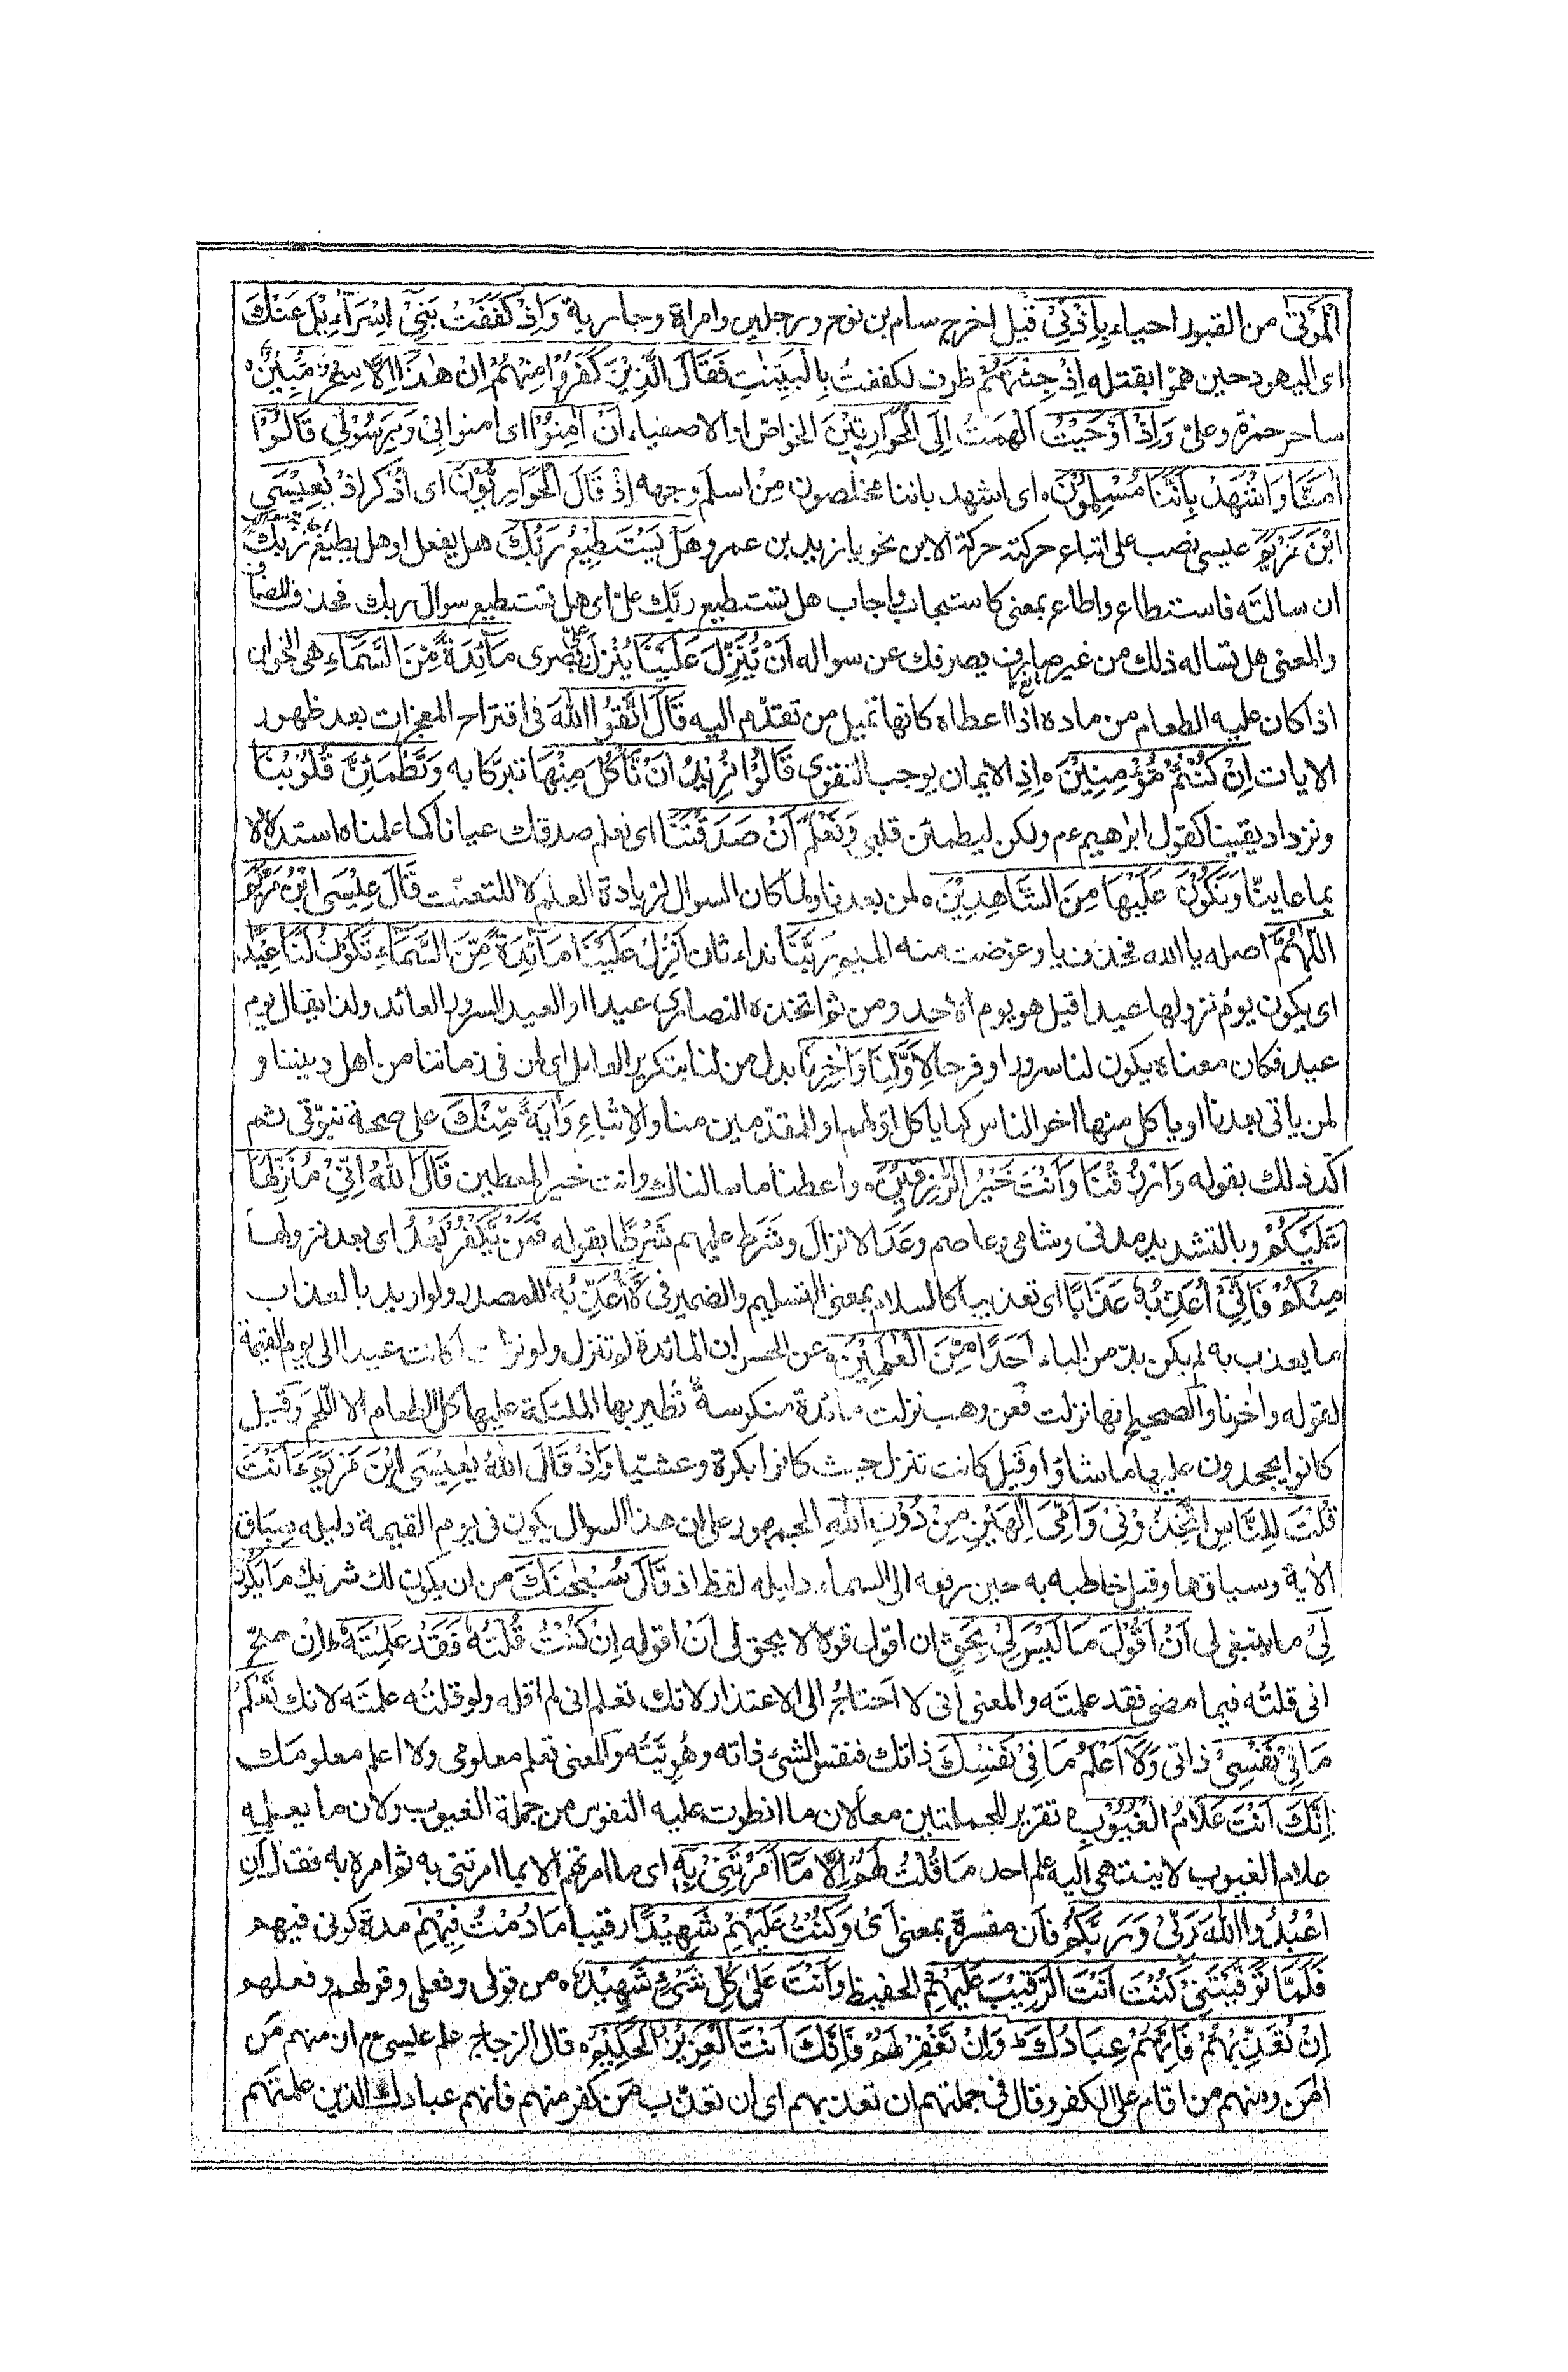 الْمَوْتٰى من القبور احياء بِاِذْنِيْ قيل اخرج سام بن نوح ورجلين وامراة وجارية وَاِذْ كَفَفْتُ بَنِيْ اِسْرَآءِيْلَ عَنْكَ
اى اليهود حين هموا بقتله اِذْ جِئْتَهُمْ ظرف لكففت بِالْبَيِّنٰتِ فَقَالَ الَّذِيْنَ كَفَرُوْا مِنْهُمْ اِنْ هٰذَا اِلَّا سِحْرٌ مُّبِيْنٌ
ساحر حمزة وعلىّ وَاِذْ اَوْحَيْتُ الهمتُ اِلَى الْحَوَارِيّٖنَ الخواصّ او الاصفياء اَنْ اٰمِنُوْا اى امنوا بِيْ وَبِرَسُوْلِيْ قَالُوْا
اٰمَنَّا وَاشْهَدْ بِاَنَّنَا مُسْلِمُوْنَ اى اشهد باننا مخلصون مِنْ اسلم وجهه اِذْ قَالَ الْحَوَارِيُّوْنَ اى اذكر اذ يٰعِيْسَى
ابْنَ مَرْيَمَ عيسى نصب على اتباع حركته حركة الابن نحو يا زيد بن عمرو هَلْ يَسْتَطِيْعُ رَبُّكَ هل يفعل او هل يطيعُ ربك
ان سالته فاستطاع واطاع بمعنى كاستجاب واجاب هل تستطيع ربَّك علىّ اى هل تستطيع سوال ربك فحذف المضاف
والمعنى هل تساله ذلك من غير صارف يصرفك عن سواله اَنْ يُّنَزِّلَ عَلَيْنَا يُنْزِلَ بصرى مَآئِدَةً مِّنَ السَّمَآءِ هى الخوان
اذا كان عليه الطعام من ماده اذا اعطاه كانها تميل من تقدّم اليه قَالَ اتَّقُوا اللهَ فى اقتراح المعجزات بعد ظهور
الايات اِنْ كُنْتُمْ مُّؤْمِنِيْنَ اِذِ الايمان يوجب التقوى قَالُوْا نُرِيْدُ اَنْ نَّاْكُلَ مِنْهَا تبركا به وَتَطْمَئِنَّ قُلُوْبُنَا
ونزداد يقينا كقول ابرهيم ءم ولكن ليطمئن قلبى وَنَعْلَمَ اَنْ صَدَقْتَنَا اى نعلم صدقك عيانا كما علمناه استدلالا
بما عاينّا وَنَكُوْنَ عَلَيْهَا مِنَ الشَّاهِدِيْنَ لمن بعدنا ولما كان السوال لزيادة العلم لا للتعنت قَالَ عِيْسَى ابْنُ مَرْيَمَ
اللّٰهُمَّ اصله يا الله فحذف يا وعوضت منه الميم رَبَّنَا نداء ثان اَنْزِلْ عَلَيْنَا مَآئِدَةً مِّنَ السَّمَآءِ تَكُوْنُ لَنَا عِيْدًا
اى يكون يومُ نزولها عيدا قيل هو يوم الاحد ومن ثم اتخذه النصارى عيدا او العيد السرور العائد ولذا يقال يوم
عيد فكان معناه يكون لنا سرورا وفرحا لِاَوَّلِنَا وَاٰخِرِنَا بدل من لنا بتكرير العامل اى لمن فى زماننا من اهل ديننا و
لمن يأتى بعدنا او ياكل منها اخر الناس كما ياكل اولهم او للمقدمين منا والاتباع وَاٰيَةً مِّنْكَ على صحة نبوّتى ثم
اكّد ذلك بقوله وَارْزُقْنَا وَاَنْتَ خَيْرُ الرّٰزِقِيْنَ واعطنا ما سالناك وانت خير المعطين قَالَ اللهُ اِنِّيْ مُنَزِّلُهَا
عَلَيْكُمْ وبالتشديد مدنى وشامى وعاصم وعَدَ الانزالَ وشَرَط عليهم شَرْطًا بقوله فَمَنْ يَّكْفُرْ بَعْدُ اى بعد نزولها
مِنْكُمْ فَاِنِّيْ اُعَذِّبُهٗ عَذَابًا اى تعذيبا كالسلام بمعنى التسليم والضمير فى لَّا اُعَذِّبُهٗ للمصدر ولو اريد بالعذاب
ما يعذب به لم يكن بدّ من الباء اَحَدًا مِّنَ الْعٰلَمِيْنَ عن الحسن ان المائدة لم تنزل ولو نزلت لكانت عيدا الى يوم القيمة
لقوله واخرنا والصحيح انها نزلت فعن وهب نزلت مائدة منكوسة تطير بها الملئكة عليها كل الطعام الا اللحم وقيل
كانوا يجدون عليها ما شاؤا وقيل كانت تنزل حيث كانوا بكرة وعشيّا وَاِذْ قَالَ اللهُ يٰعِيْسَى ابْنَ مَرْيَمَ ءَاَنْتَ
قُلْتَ لِلنَّاسِ اتَّخِذُوْنِيْ وَاُمِّيَ اِلٰهَيْنِ مِنْ دُوْنِ اللهِ الجمهور على ان هذا السوال يكون فى يوم القيمة دليله سِبَاق
الاية وسياقها وقيل خاطبه به حين رفعه الى السماء دليله لفظ اذ قَالَ سُبْحٰنَكَ من ان يكون لك شريك مَا يَكُوْنُ
لِيْ ما ينبغى لى اَنْ اَقُوْلَ مَا لَيْسَ لِيْ بِحَقٍّ ان اقول قولا لا يحق لى ان اقوله اِنْ كُنْتُ قُلْتُهٗ فَقَدْ عَلِمْتَهٗ ان صحّ
انى قلتُه فيما مضى فقد علمتَه والمعنى انى لا احتاج الى الاعتذار لانك تعلم انى لم اقله ولو قلتُه علمتَه لانك تَعْلَمُ
مَا فِيْ نَفْسِيْ ذاتى وَلَآ اَعْلَمُ مَا فِيْ نَفْسِكَ ذاتك فنفس الشئ ذاته وهُوِيّتُه والمعنى تعلم معلومى ولا اعلم معلومك
اِنَّكَ اَنْتَ عَلَّامُ الْغُيُوْبِ تقرير للجملتين معا لان ما انطوت عليه النفوس من جملة الغيوب ولان ما يعلمه
علام الغيوب لا ينتهى اليه علم احد مَا قُلْتُ لَهُمْ اِلَّا مَآ اَمَرْتَنِيْ بِهٖ اى ما امرتهم الا بما امرتنى به ثم امره به فقال اَنِ
اعْبُدُوا اللهَ رَبِّيْ وَرَبَّكُمْ فاَن مفسرة بمعنى اَى وَكُنْتُ عَلَيْهِمْ شَهِيْدًا رقيبا مَا دُمْتُ فِيْهِمْ مدة كونى فيهم
فَلَمَّا تَوَفَّيْتَنِيْ كُنْتَ اَنْتَ الرَّقِيْبَ عَلَيْهِمْ الحفيظ وَاَنْتَ عَلٰى كُلِّ شَيْءٍ شَهِيْدٌ من قولى وفعلى وقولهم وفعلهم
اِنْ تُعَذِّبْهُمْ فَاِنَّهُمْ عِبَادُكَ وَاِنْ تَغْفِرْ لَهُمْ فَاِنَّكَ اَنْتَ الْعَزِيْزُ الْحَكِيْمُ قال الزجاج علم عيسى ءم ان منهم مَن
اٰمن ومنهم من اقام على الكفر وقال فى جملتهم ان تعذبهم اى ان تعذّب مَن كفر منهم فانهم عبادك الذين علمتهم